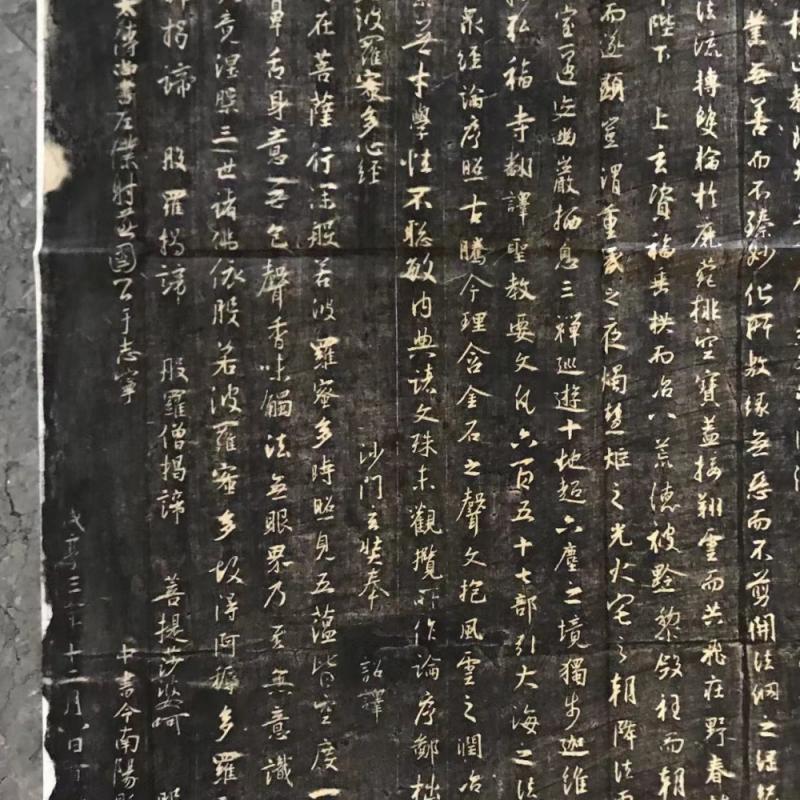 業無善而不臻妙化所敷緣無惡而不剪開法網之綱紀
法流轉雙輪於鹿菀排空寶蓋接翔雲而共飛庄野春
陛下 上玄資福垂拱而治八荒德被黔黎斂衽而朝
而遂顯豈謂重昏之夜燭慧炬之光火宅之朝降法雨
室還空幽巖栖息三禪巡遊十地超六塵之境獨步迦維
於弘福寺翻譯聖教要文凡六百五十七部引大海之法
衆經論序照古騰今理含金石之聲文抱風雲之潤治
素無才學性不聰敏內典諸文殊未觀攬所作論序鄙拙
波羅蜜多心經 沙門玄奘奉 詔譯
在菩薩行深般若波羅蜜多時照見五蘊皆空度一
鼻舌身意無色聲香味觸法無眼界乃至無意識
究竟涅槃三世諸佛依般若波羅蜜多故得阿耨多羅
揭諦 般羅揭諦 般羅僧揭諦 菩提莎婆呵 般
太子太傅尚書左僕射燕國公于志寧 中書令南陽
咸亨三年十二月八日